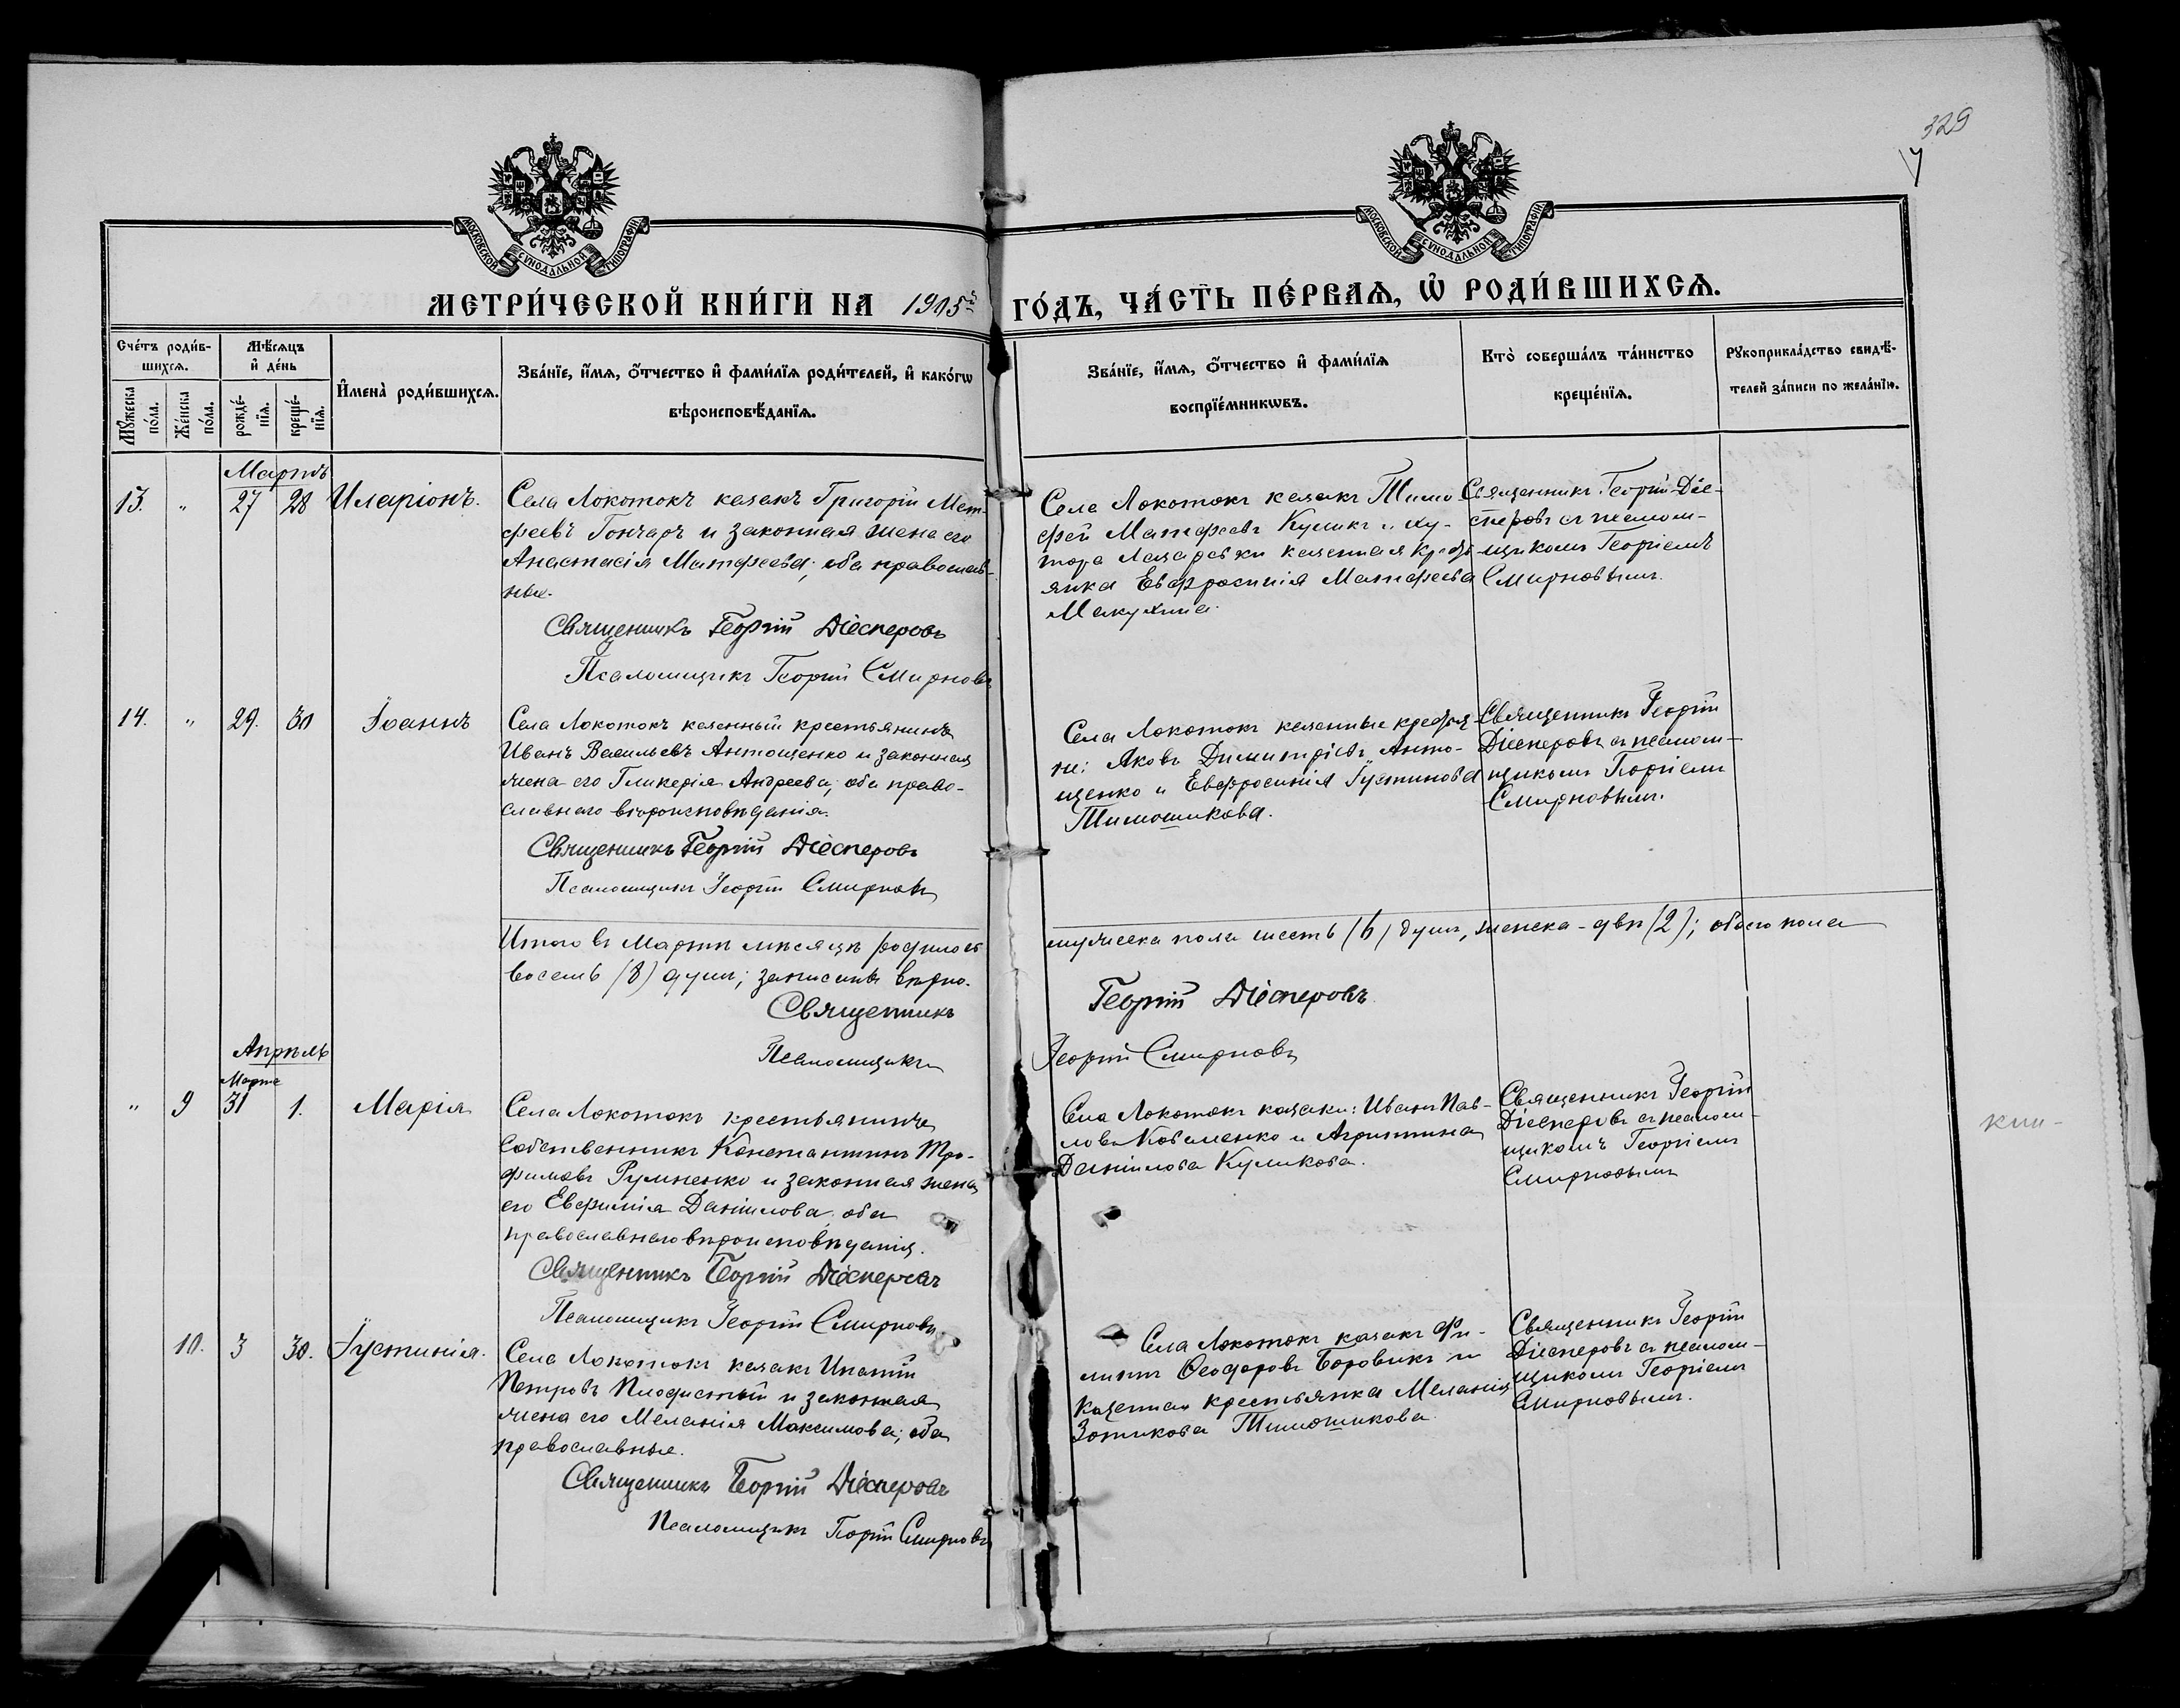 329
МОСКОВСКОЙ СУНОДАЛЬНОЙ ТИПОГРАФІИ.
МОСКОВСКОЙ СУНОДАЛЬНОЙ ТИПОГРАФІИ.
МЕТРИ́ЧЕСКОЙ КНИ́ГИ НА 1905й ГО́ДЪ, ЧА́СТЬ ПЕ́РВАѦ, Ѡ РОДИ́ВШИХСѦ.
Сче́тъ роди́в-
шихсѧ.
Мꙋ́жеска по́ла.
Же́нска по́ла.
Мѣ́сѧцъ
и де́нь
рожде́-
нїѧ.
креще́-
нїѧ.
И҆мена̀ роди́вшихсѧ.
Зва́нїе, и҆́мѧ, ѻ҆́тчество и҆ фами́лїѧ роди́телей, и҆ како́гѡ
вѣроисповѣ́данїѧ.
Зва́нїе, и҆́мѧ, ѻ҆́тчество и҆ фами́лїѧ
воспрїе́мникѡвъ.
Кто̀ соверша́лъ та́инство
креще́нїѧ.
Рꙋкоприкла́дство свидѣ́-
телей за́писи по жела́нїю.
Мартъ
13. " 27 28 Иларіонъ.
Села Локотокъ казакъ Григорій Мат-
феевъ Гончаръ и законная жена его
Анастасія Матфеева; оба православ-
ные.
Священникъ Георгій Діесперовъ
Псаломщикъ Георгій Смирновъ
Села Локотокъ казакъ Тимо-
фей Матфеевъ Куликъ и ху-
тора Лазаревки казенная кресть-
янка Евфросинія Матфеева
Макухина.
Священникъ Георгій Діе-
сперовъ съ псалом-
щикомъ Георгіемъ
Смирновымъ.
14. " 29. 30 Іоаннъ
Села Локотокъ казенный крестьянинъ
Иванъ Васильевъ Антощенко и законная
жена его Гликерія Андреева; оба право-
славнаго вѣроисповѣданія.
Священникъ Георгій Діесперовъ
Псаломщикъ Георгій Смирновъ
Села Локотокъ казенные крестья-
не: Яковъ Димитріевъ Анто-
щенко и Евфросинія Іустинова
Тимошикова.
Священникъ Георгій
Діесперовъ съ псалом-
щикомъ Георгіемъ
Смирновымъ.
Итого въ Мартѣ мѣсяцѣ родилось мужеска пола шесть (6) душъ, женска - двѣ (2); обоего пола
восемь (8) душъ; записаны вѣрно.
Священникъ Георгій Діесперовъ
Псаломщикъ Георгій Смирновъ
Апрѣль
Марта
" 9 31 1. Марія
Села Локотокъ крестьянинъ
собственникъ Константинъ Тро-
фимовъ Румненко и законная жена
его Евфимія Даніилова, оба
православнаго вѣроисповѣданія.
Священникъ Георгій Діесперовъ
Псаломщикъ Георгій Смирновъ
Села Локотокъ казаки: Иванъ Пав-
ловъ Коваленко и Агриппина
Даніилова Куликова.
Священникъ Георгій
Діесперовъ съ псалом-
щикомъ Георгіемъ
Смирновымъ
10. 3 30. Іустинія.
Села Локотокъ казакъ Ипатій
Петровъ Плодистый и законная
жена его Меланія Максимова; оба
православные.
Священникъ Георгій Діесперовъ
Псаломщикъ Георгій Смирновъ
Села Локотокъ казакъ Фи-
липпъ Ѳеодоровъ Боровикъ и
казенная крестьянка Меланія
Зотикова Тимошикова.
Священникъ Георгій
Діесперовъ съ псалом-
щикомъ Георгіемъ
Смирновымъ.